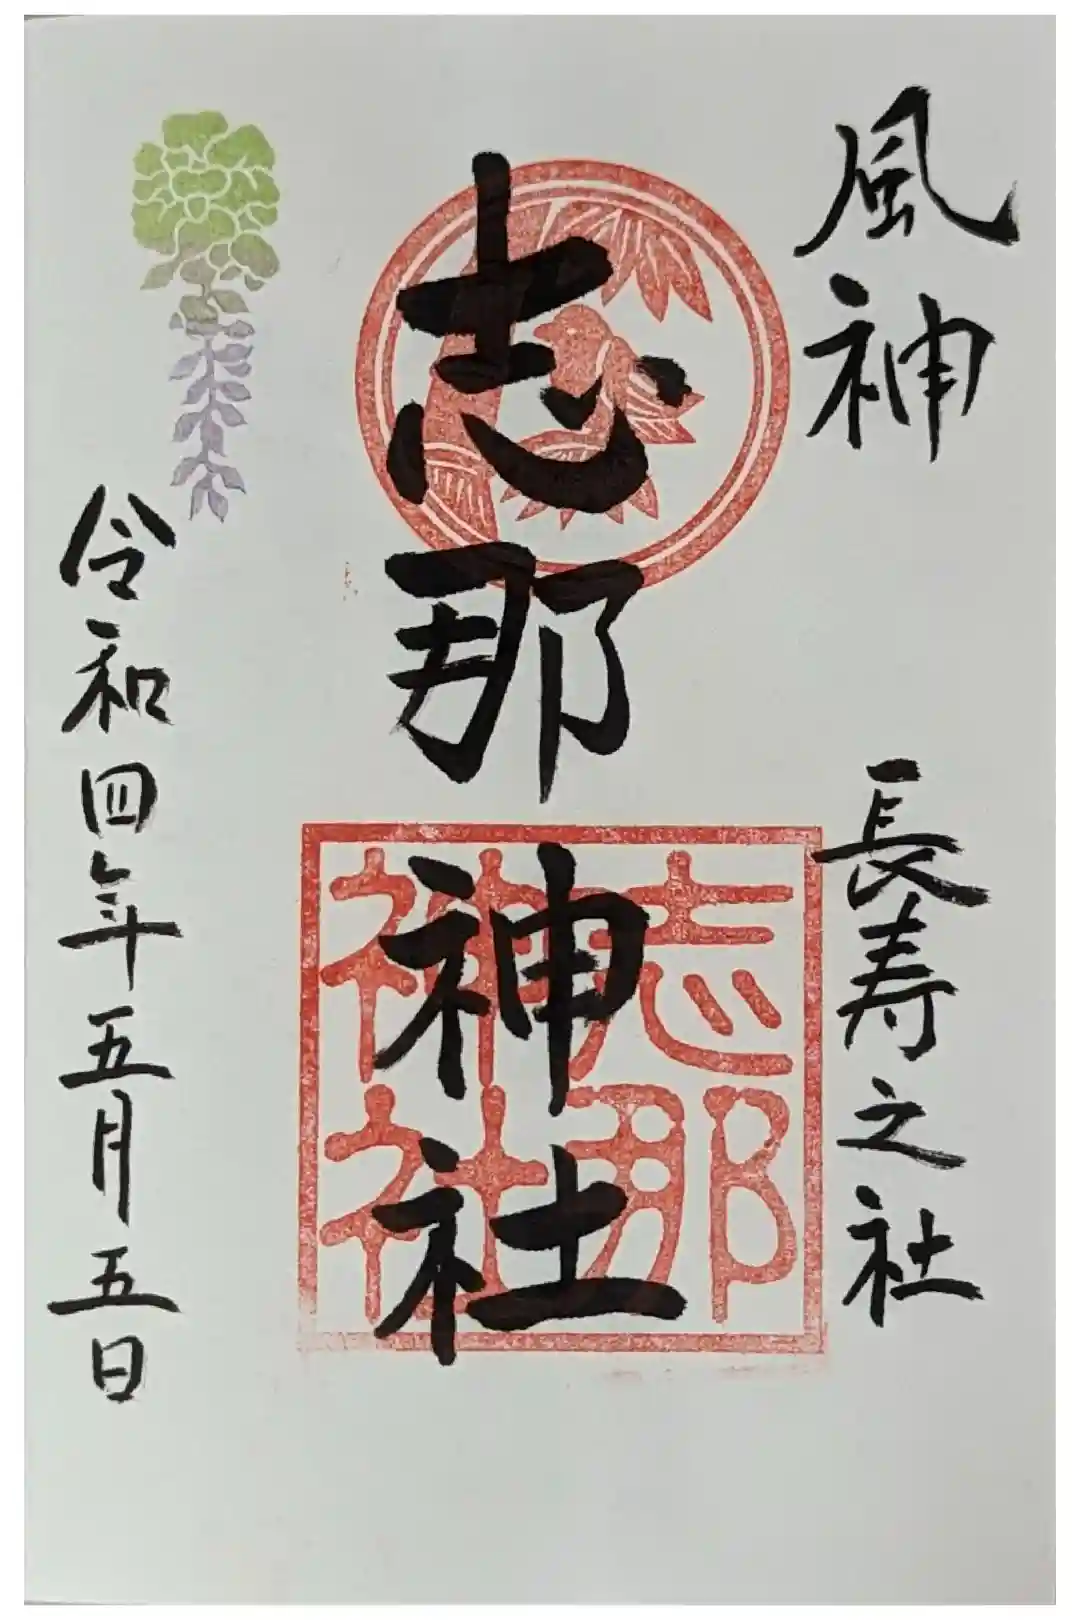 風神　長寿之社
志那神社
志那
神社
令和四年五月五日